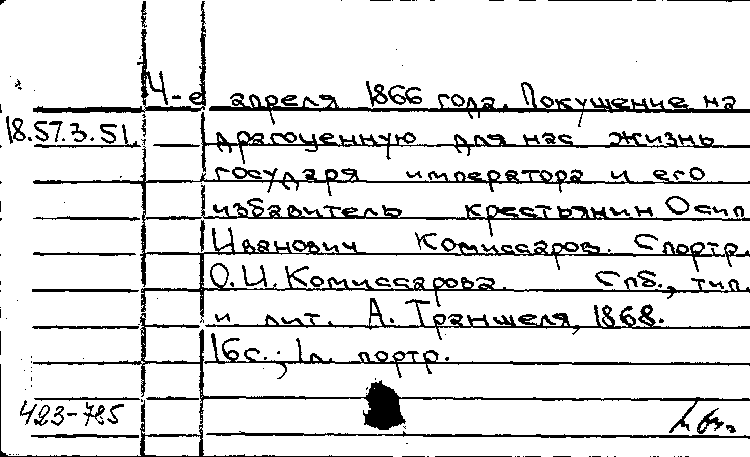 4-е апреля 1866 года. Покушение на
18.57.3.51. драгоценную для нас жизнь
государя императора и его
избавитель крестьянин Осип
Иванович Комиссаров. С портр.
О.И. Комиссарова. Спб., тип.
и лит. А. Траншеля, 1868.
16с.; 1л. портр.
423-785